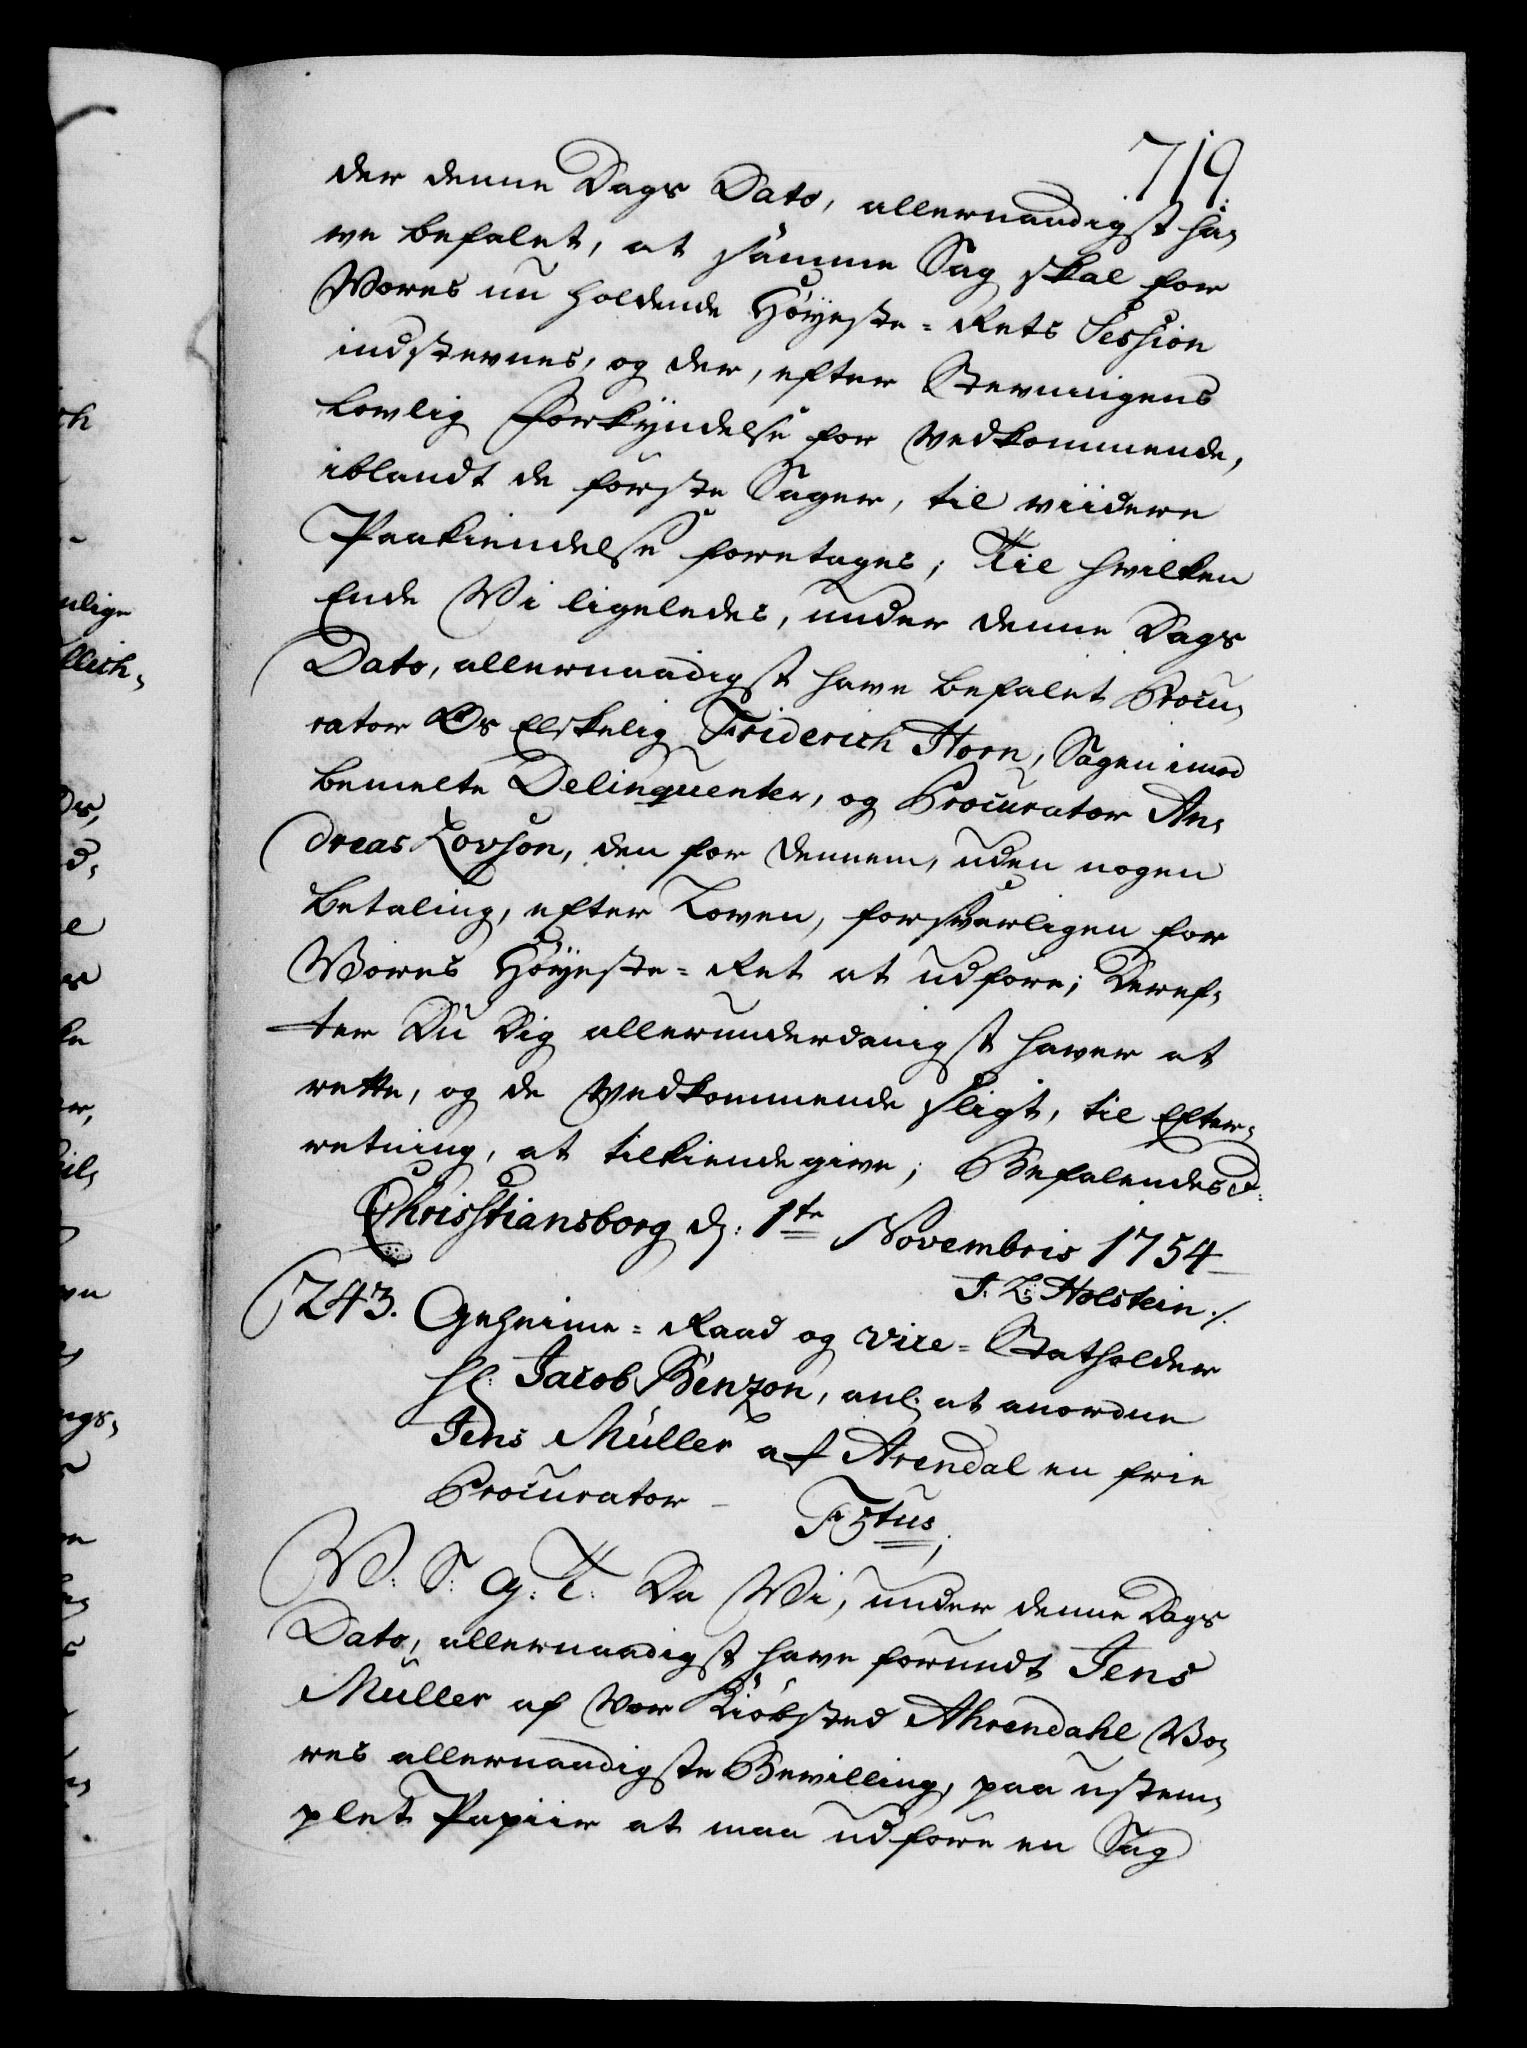 719.
der denne Dags Dato, allernaadigst ha¬
ve befalet, at samme Sag skal for
Vores nu holdende Høyeste-Rets Session
indstevnes, og der, efter Stevningens
lovlig Forkyndelse for Vedkommende,
iblandt de første Sager, til viidere
Paakiendelse foretages; Til hvilken
Ende Vi ligeledes, under denne Dags
Dato, allernaadigst have befalet Procu¬
rator Os Elskelig Friderich Horn, Sagen imod
bemelte Delinquenter, og Procurator An¬
dreas Lovson, den for dennem, uden nogen
Betaling, efter Loven, forsvarligen for
Vores Høyeste-Ret at udføre; Deref¬
ter Du Dig allerunderdanigst haver at
rette, og de Vedkommende sligt, til Efter¬
retning, at tilkiendegive; Befalendes
Christiansborg d: 1te Novembris 1754
J. L. Holstein ./.
243. Geheime-Raad og Vice-Statholder
Hr: Jacob Benzon, anl: at anordne
Jens Müller af Arendal en frie
Procurator – F 5tus,
V: S: G: T: Da Vi, under denne Dags
Dato, allernaadigst have forundt Jens
Müller af Vor Kiøbsted Ahrendahl Vo¬
res allernaadigste Bevilling, paa ustem¬
plet Papiir at maa udføre en Sag